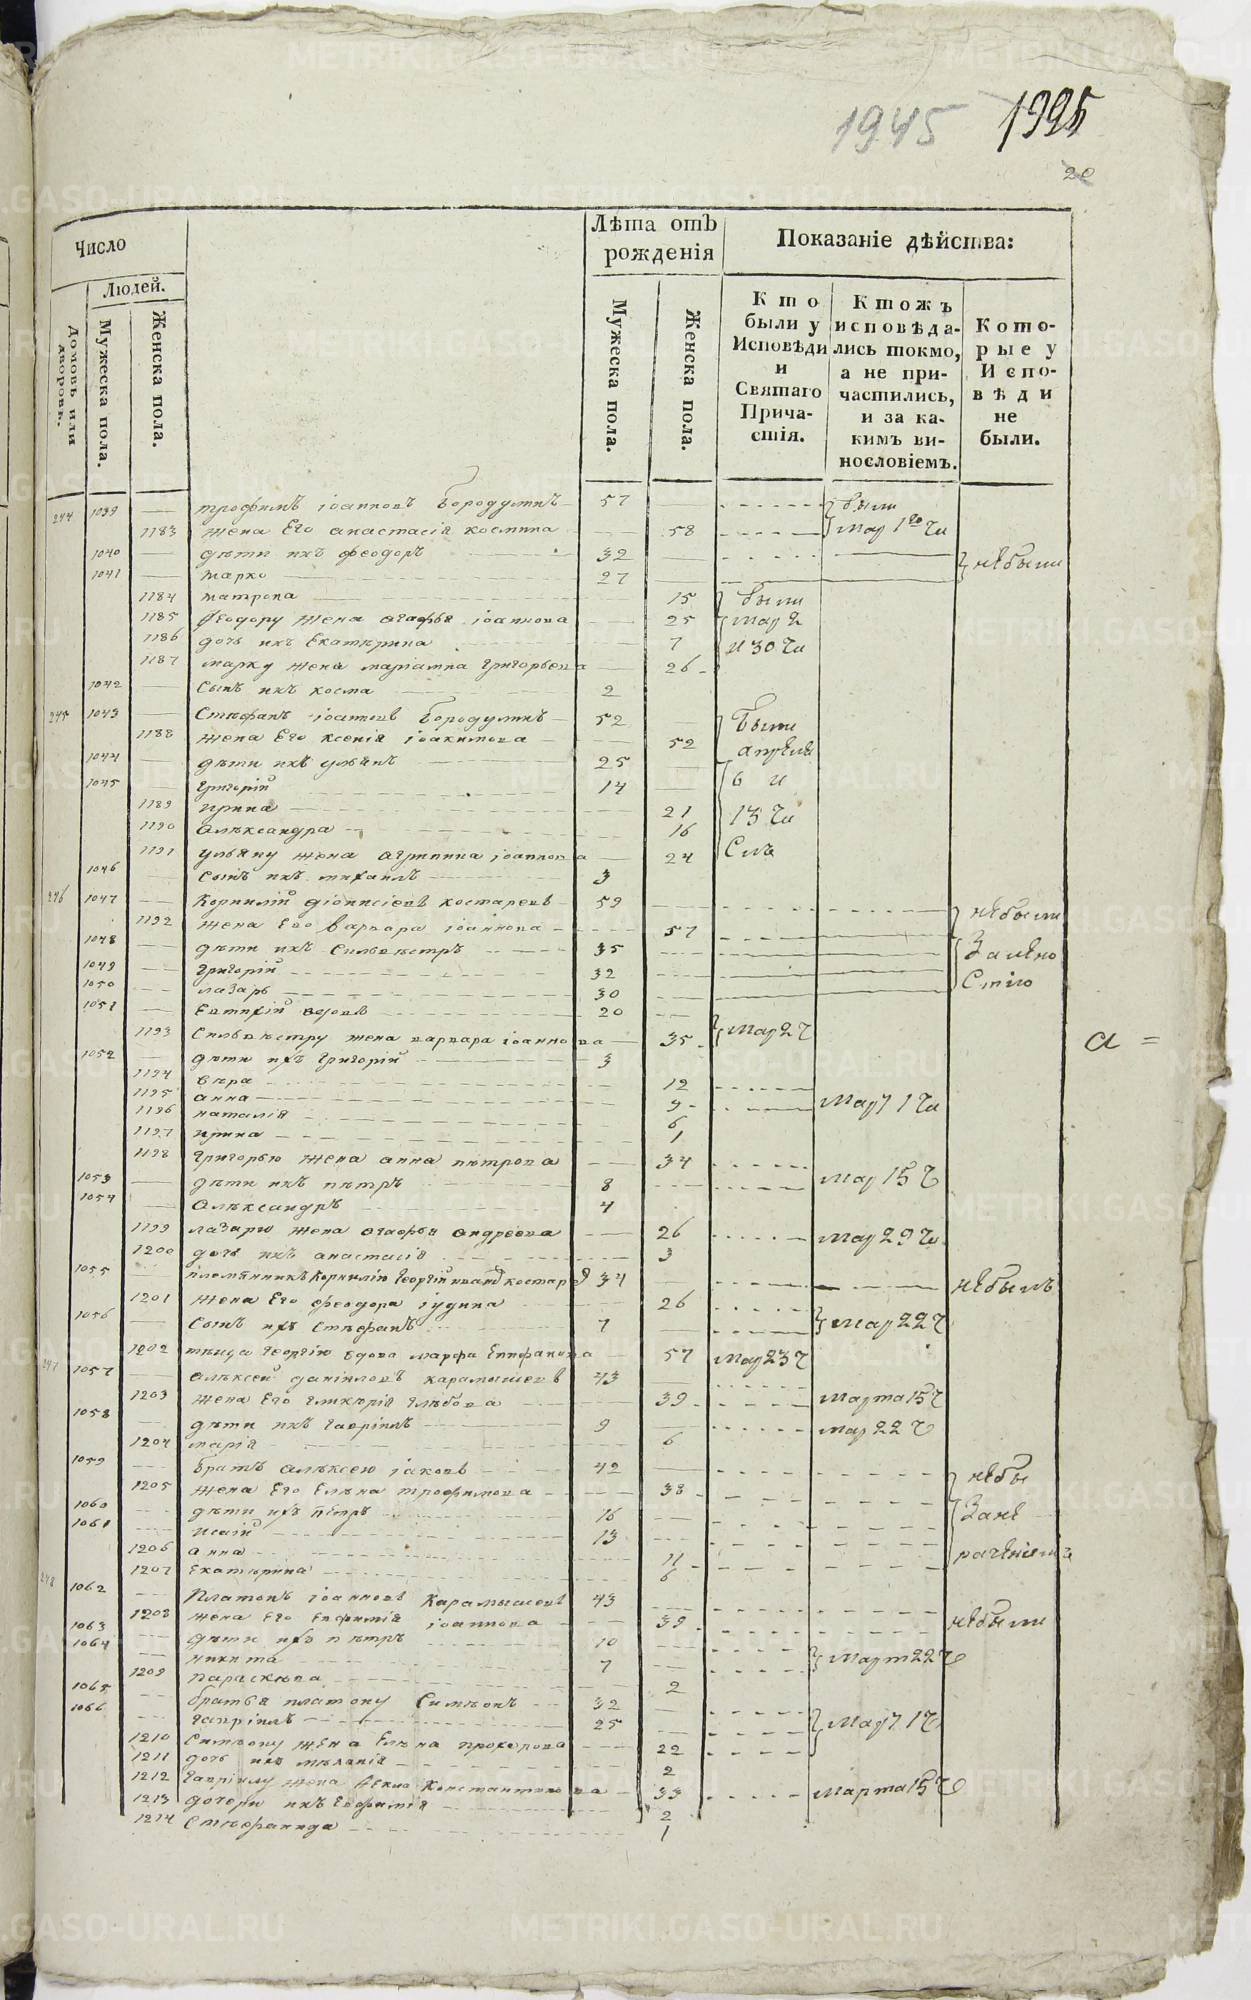 1945 1995
20
Число
Лѣта отъ рожденія
Показаніе дѣйства:
Людей.
Домовъ или дворовъ.
Мужеска пола.
Женска пола.
Мужеска пола.
Женска пола.
Кто были у Исповѣди и Святаго Прича-стія.
Ктожъ исповѣда-лись токмо, а не при-частились, и за ка-кимъ ви-нословіемъ.
Кото-рые у Испо-вѣди не были.
244 1039 трофимъ іоанновъ Бородулинъ 57 были
1183 жена Его анастасія космина 58 Мар 1го Чи
1040 дѣти ихъ феодоръ 32 небыли
1041 марко 27
1184 матрона 15 были
1185 Феодору жена агафья іоаннова 25 Мар 2
1186 дочь ихъ Екатерина 7 и 30 Чи
1187 марку жена маріамна григорьева 26
1042 Сынъ ихъ косма 2
245 1043 Стефанъ іоанновъ Бородулинъ 52 Были
1188 жена Его ксенія іоакимова 52 апреля
1044 дѣти ихъ ульянъ 25 6 и
1045 григорій 14
1189 ирина 21 13 Чи
1190 александра 16
1191 ульяну жена агрипина іоаннова 24
1046 Сынъ ихъ михаилъ 3
246 1047 Корнилій діонисіевъ костаревъ 59 небыли
1192 жена Его варвара іоаннова 57
1048 дѣти ихъ Сильвестръ 35
1049 григорій 32
1050 лазарь 30
1051 Евтихій вдовъ 20
1193 Сильвестру жена варвара іоаннова 35 Мар 27
1052 дѣти ихъ григорій 3
1194 вѣра 12
1195 анна 9 Мар 1 Чи
1196 наталія 6
1197 ирина 1
а =
1198 Григорью жена анна петрова 34
1053 дѣти ихъ петръ 8 Мар 15 Ч
1054 Александръ 4
1199 лазарю жена агафья андреева 26 Мар 29 Чи
1200 дочь ихъ анастасія 3
1055 племянникъ Корнилію Георгій костарев 34 небылъ
1201 жена Его феодора іудина 26
1056 Сынъ ихъ Стефанъ 7 Мар 22 Ч
1202 теща Георгію вдова марфа Епифанова 57 Мар 23 Ч
247 1057 алексей даниловъ карамышевъ 43
1203 жена Его гликерія глебова 39 Марта 15 Ч
1058 дѣти ихъ гавріилъ 9 Мар 22 Ч
1204 марія 6
1059 братъ алексею іаковъ 42 небы
1205 жена Его Елена трофимова 38
1060 дѣти ихъ петръ 16
1061 исаій 13
1206 анна 11
1207 екатерина 6
248 1062 Платонъ іоанновъ Карамышевъ 43
1208 жена Его Евфимія іоаннова 39 небыли
1063 дѣти ихъ петръ 10
1064 никита 7 Март 22 Ч
1209 параскева 2
1065 братья платону Симеонъ 32
1066 гавріилъ 25 Мар 1 Ч
1210 Симеону жена Елена прохорова 22
1211 дочь ихъ меланія 2
1212 гавріилу жена фекла Константинова 33 Марта 15 Ч
1213 дочери ихъ Евфимія 2
1214 Стефанида 1